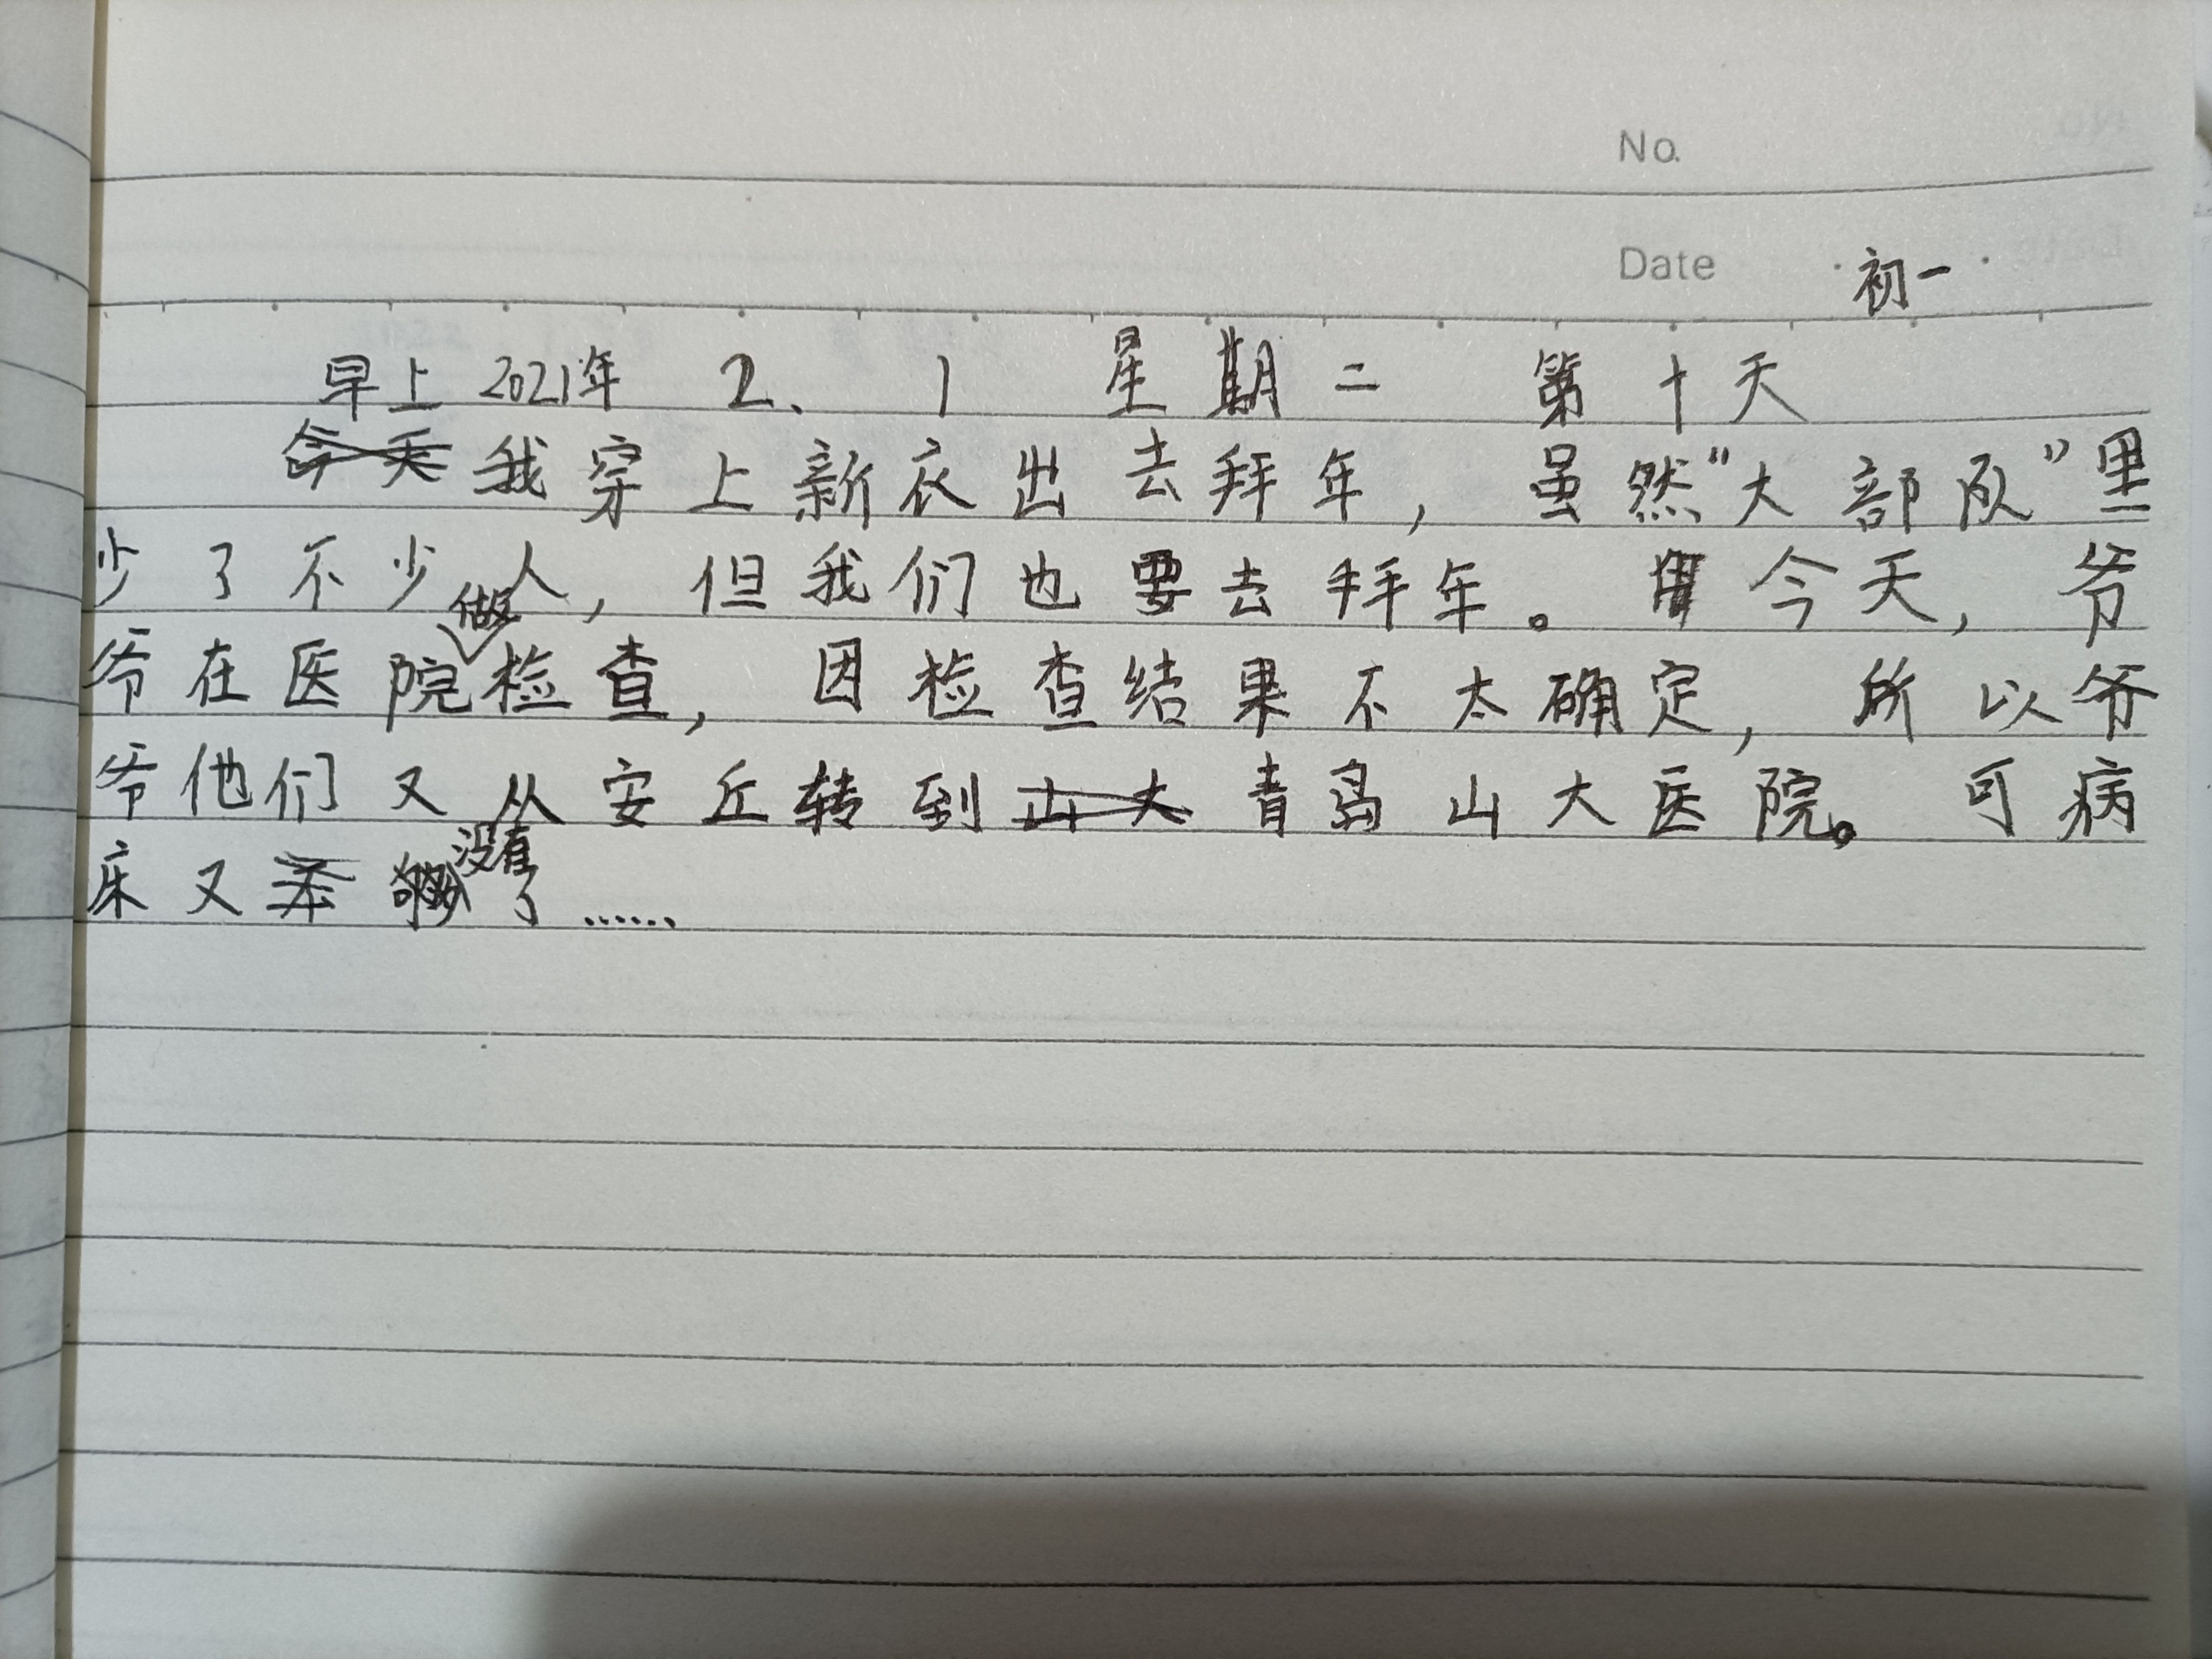 No.
Date 初一
早上 2021年 2、1 星期二 第十天
我穿上新衣出去拜年，虽然“大部队”里
少了不少人，但我们也要去拜年。今天，爷
爷在医院做检查，因检查结果不太确定，所以爷
爷他们又从安丘转到青岛山大医院。可病
床又没有了……